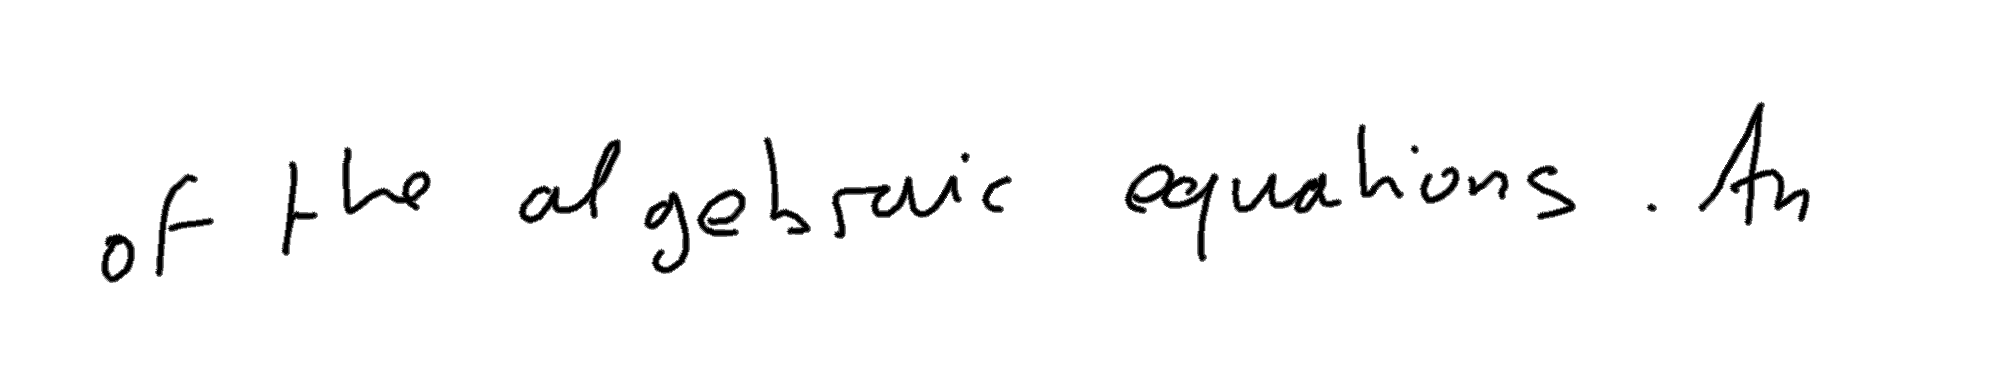 of the algebraic equations. An